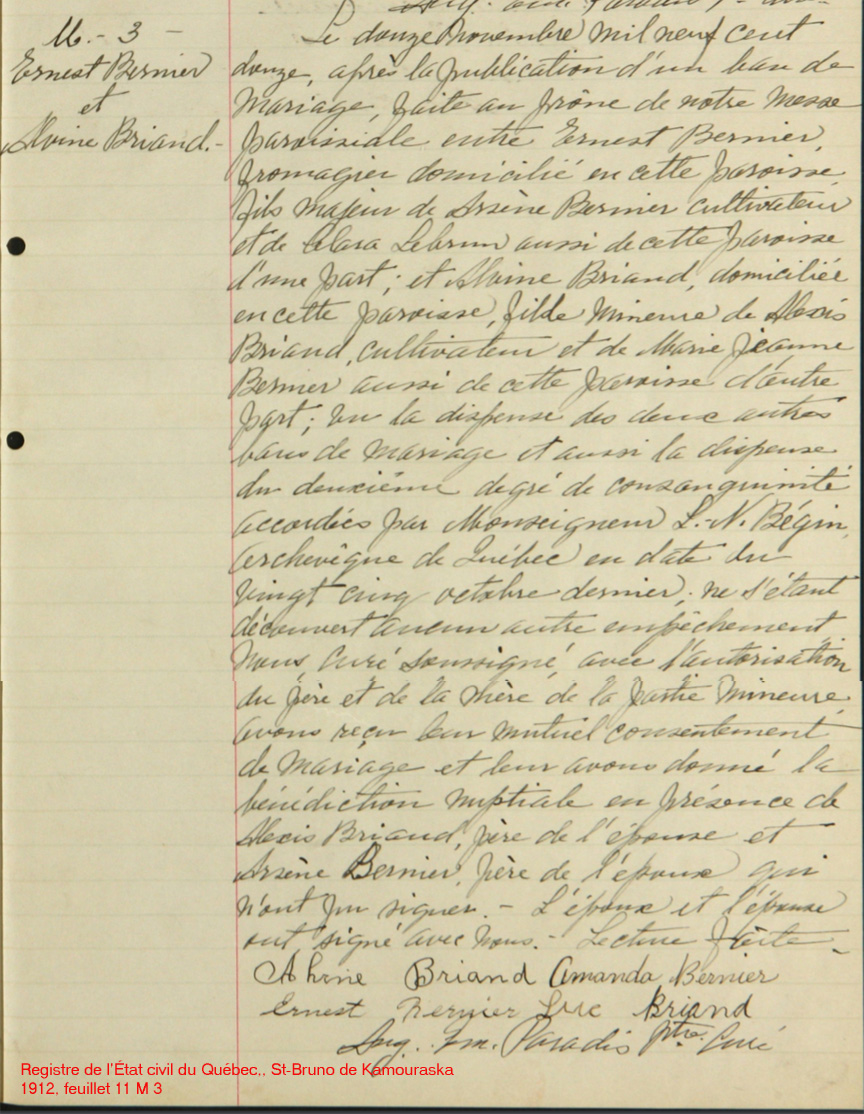 M. - 3 -
Ernest Bernier
et
Alvine Briand. -
Le douze Novembre mil neuf cent
douze, après la publication d'un ban de
Mariage, faite au prône de notre Messe
paroissiale entre Ernest Bernier,
fromagier domicilié en cette paroisse,
fils majeur de Arsène Bernier cultivateur
et de Clara Lebrun aussi de cette paroisse
d'une part; et Alvine Briand, domiciliée
en cette paroisse, fille Mineure de Alexis
Briand, cultivateur et de Marie Jeanne
Bernier aussi de cette paroisse d'autre
part; vu la dispense des deux autres
bans de Mariage et aussi la dispense
du deuxième degré de consanguinité
accordées par Monseigneur L.-N. Bégin,
Archevêque de Québec en date du
vingt cinq octobre dernier; ne s'étant
découvert aucun autre empêchement,
Nous, Curé soussigné, avec l'autorisation
du père et de la mère de la partie Mineure,
avons reçu leur mutuel consentement
de Mariage et leur avons donné la
bénédiction nuptiale en présence de
Alexis Briand, père de l'épouse et
Arsène Bernier, père de l'époux qui
n'ont pu signer. - L'époux et l'épouse
ont signé avec Nous. - Lecture faite -
Alvine Briand Amanda Bernier
Ernest Bernier Luc Briand
Aug. Paradis Ptre Curé
Registre de l'État civil du Québec., St-Bruno de Kamouraska
1912, feuillet 11 M 3